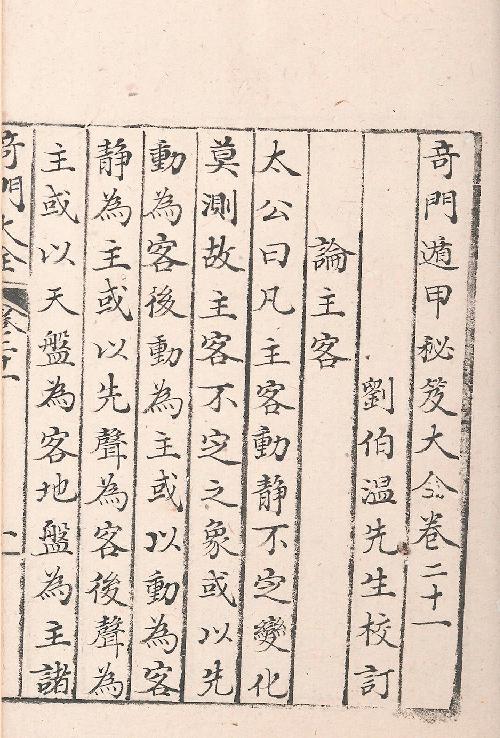 奇門遁甲秘笈大全卷二十一
劉伯温先生校訂
論主客
太公曰凡主客動静不定變化
莫測故主客不定之象或以先
動為客後動為主或以動為客
静為主或以先聲為客後聲為
主或以天盤為客地盤為主諸
奇門大全 卷二十一 一